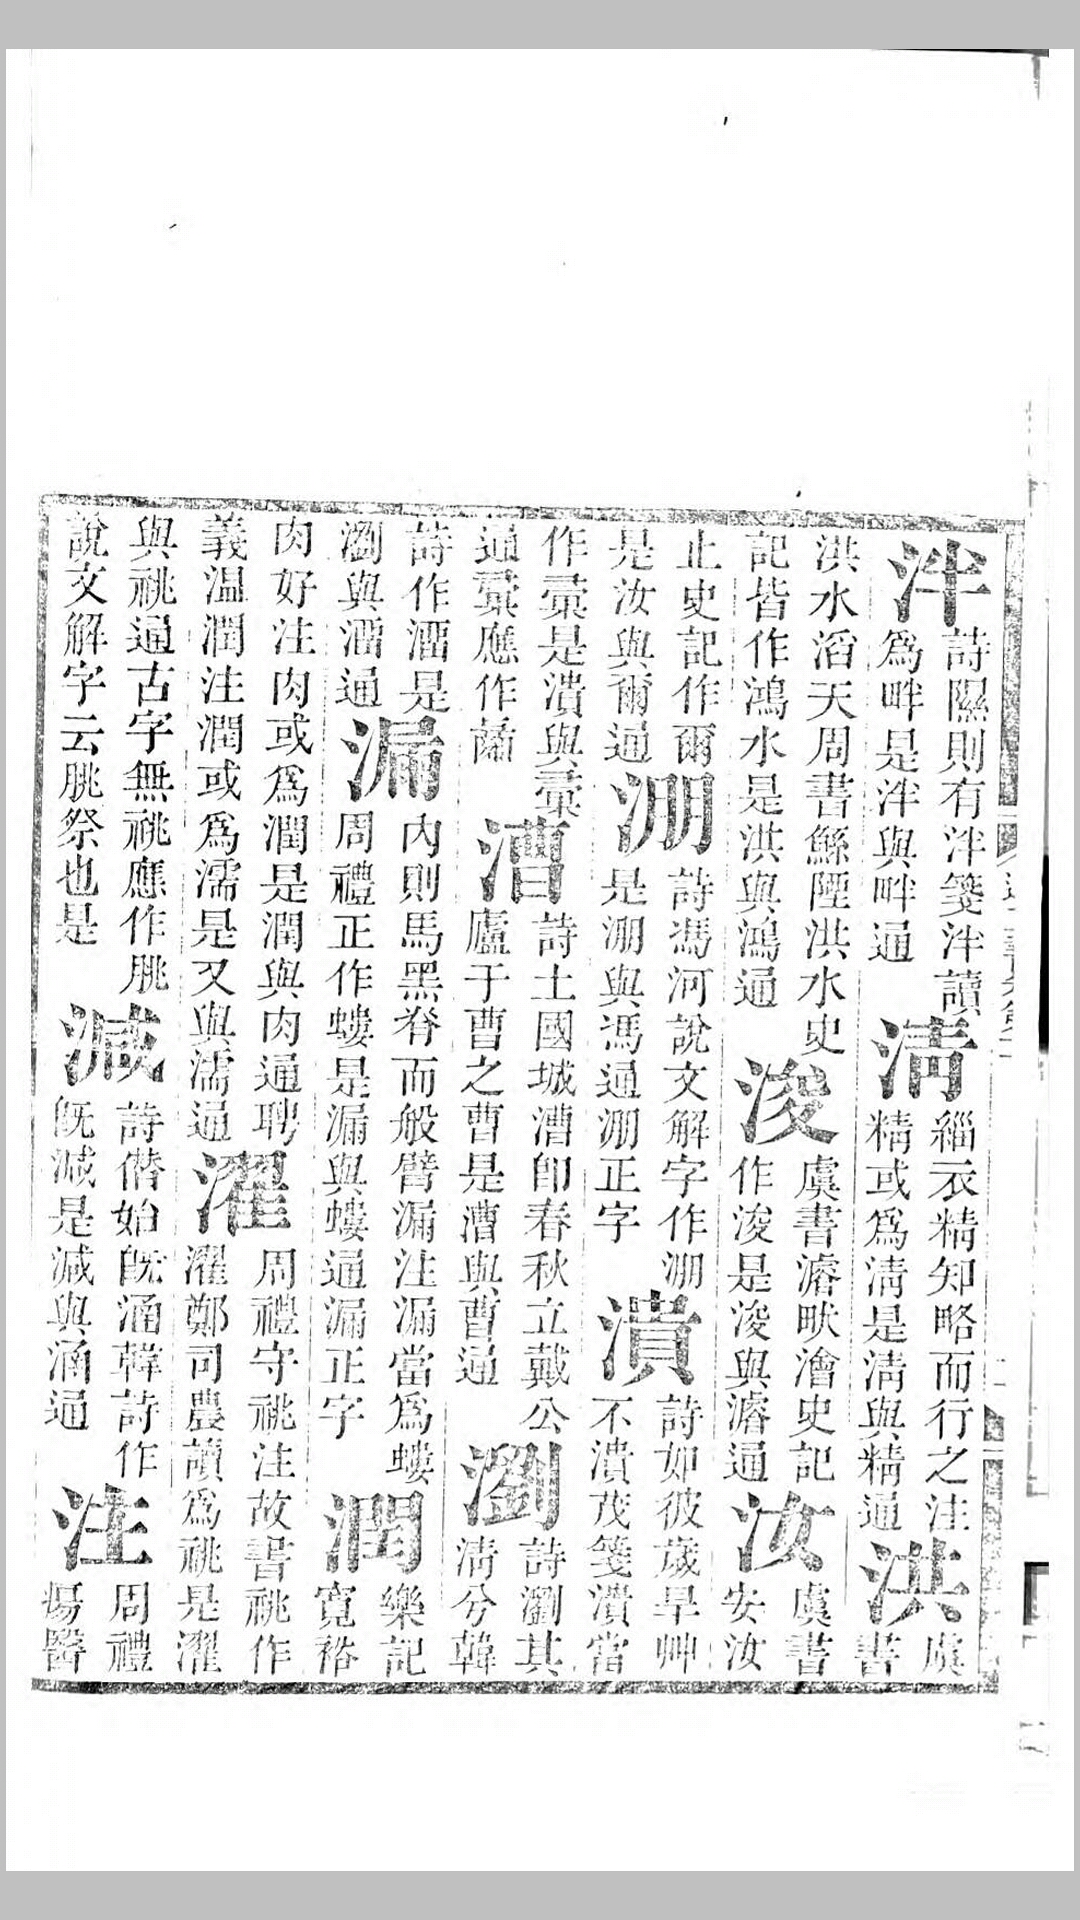 泮詩隰則有泮箋泮讀為畔是泮與畔通清緇衣精知略而行之注精或為清是清與精通洪虞書
洪水滔天周書鯀陻洪水史記皆作鴻水是洪與鴻通浚虞書濬畎澮史記作浚是浚與濬通汝虞書安汝
止史記作爾是汝與爾通淜詩馮河說文解字作淜是淜與馮通淜正字潰詩如彼歲旱艸不潰茂箋潰當
作彚是潰與彚通彚應作漕詩土國城漕卽春秋立戴公廬于曹之曹是漕與曹通瀏詩瀏其清兮韓
詩作是瀏與通漏內則馬黑脊而般臂漏注漏當為螻周禮正作螻是漏與螻通漏正字潤樂記寬裕
肉好注肉或為潤是潤與肉通聘義温潤注潤或為濡是又與濡通濯周禮守祧注故書祧作濯鄭司農讀為祧是濯
與祧通古字無祧應作朓說文解字云朓祭也是減詩僭始旣涵韓詩作旣減是減與涵通注周禮瘍醫